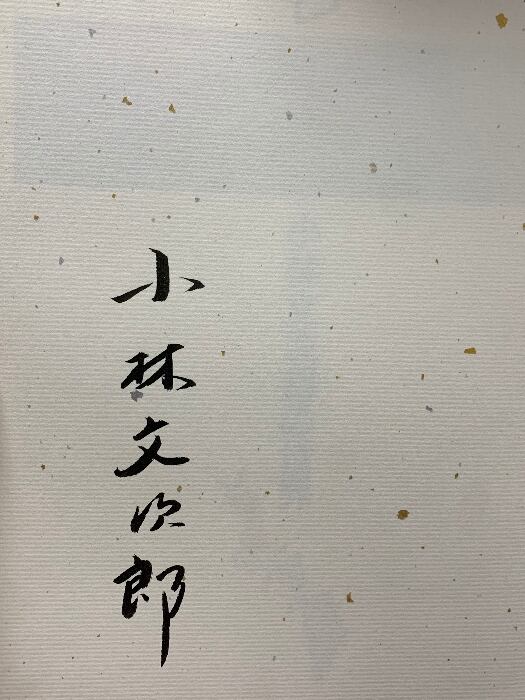 小林文次郎